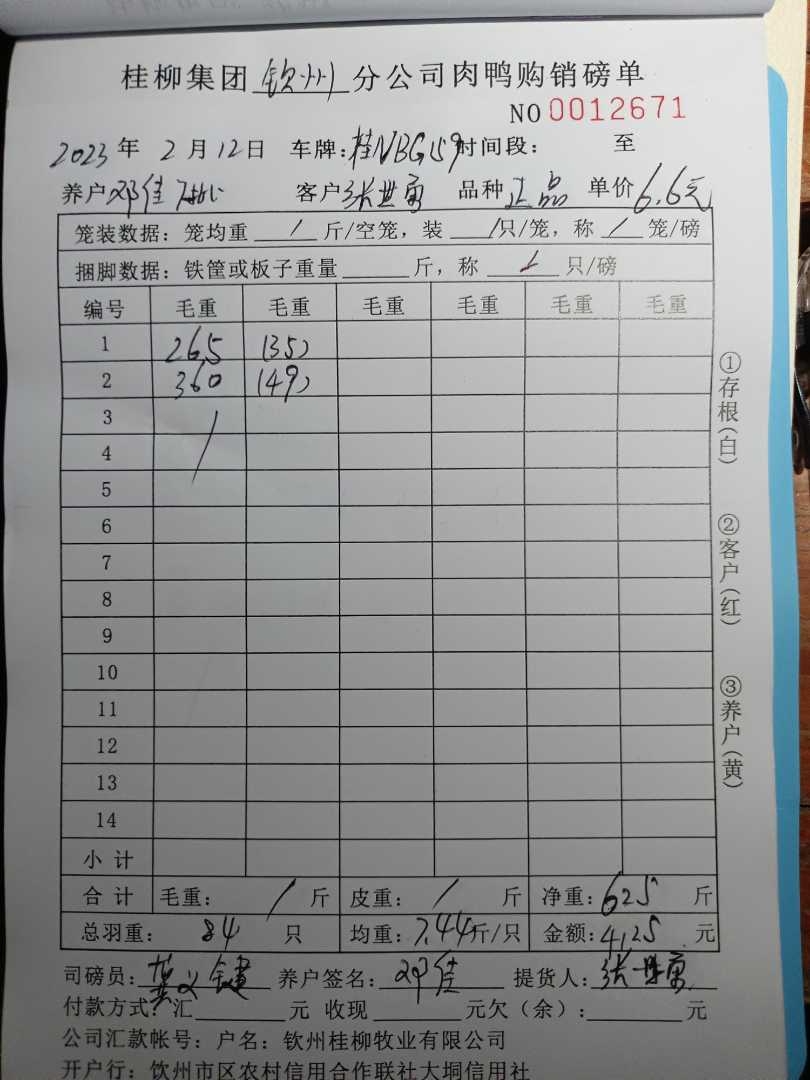 桂柳集团 钦州 分公司肉鸭购销磅单
NO 0012671
2023年 2月12日 车牌:桂NBG159 时间段: 至
养户 邓佳 客户 张世 品种 正品 单价 6.6元
笼装数据: 笼均重 / 斤/空笼, 装 / 只/笼, 称 / 笼/磅
捆脚数据: 铁筐或板子重量 斤, 称 / 只/磅
编号 毛重 毛重 毛重 毛重 毛重 毛重
1 265 (35)
2 360 (49)
3 /
4
5
6
7
8
9
10
11
12
13
14
小计
合计 毛重: / 斤 皮重: / 斤 净重: 625 斤
总羽重: 84 只 均重: 7.44斤/只 金额: 4125 元
司磅员: 养户签名: 邓佳 提货人: 张世
付款方式: 汇 元 收现 元欠(余): 元
公司汇款帐号: 户名: 钦州桂柳牧业有限公司
开户行: 钦州市区农村信用合作联社大垌信用社
①存根(白)
②客户(红)
③养户(黄)